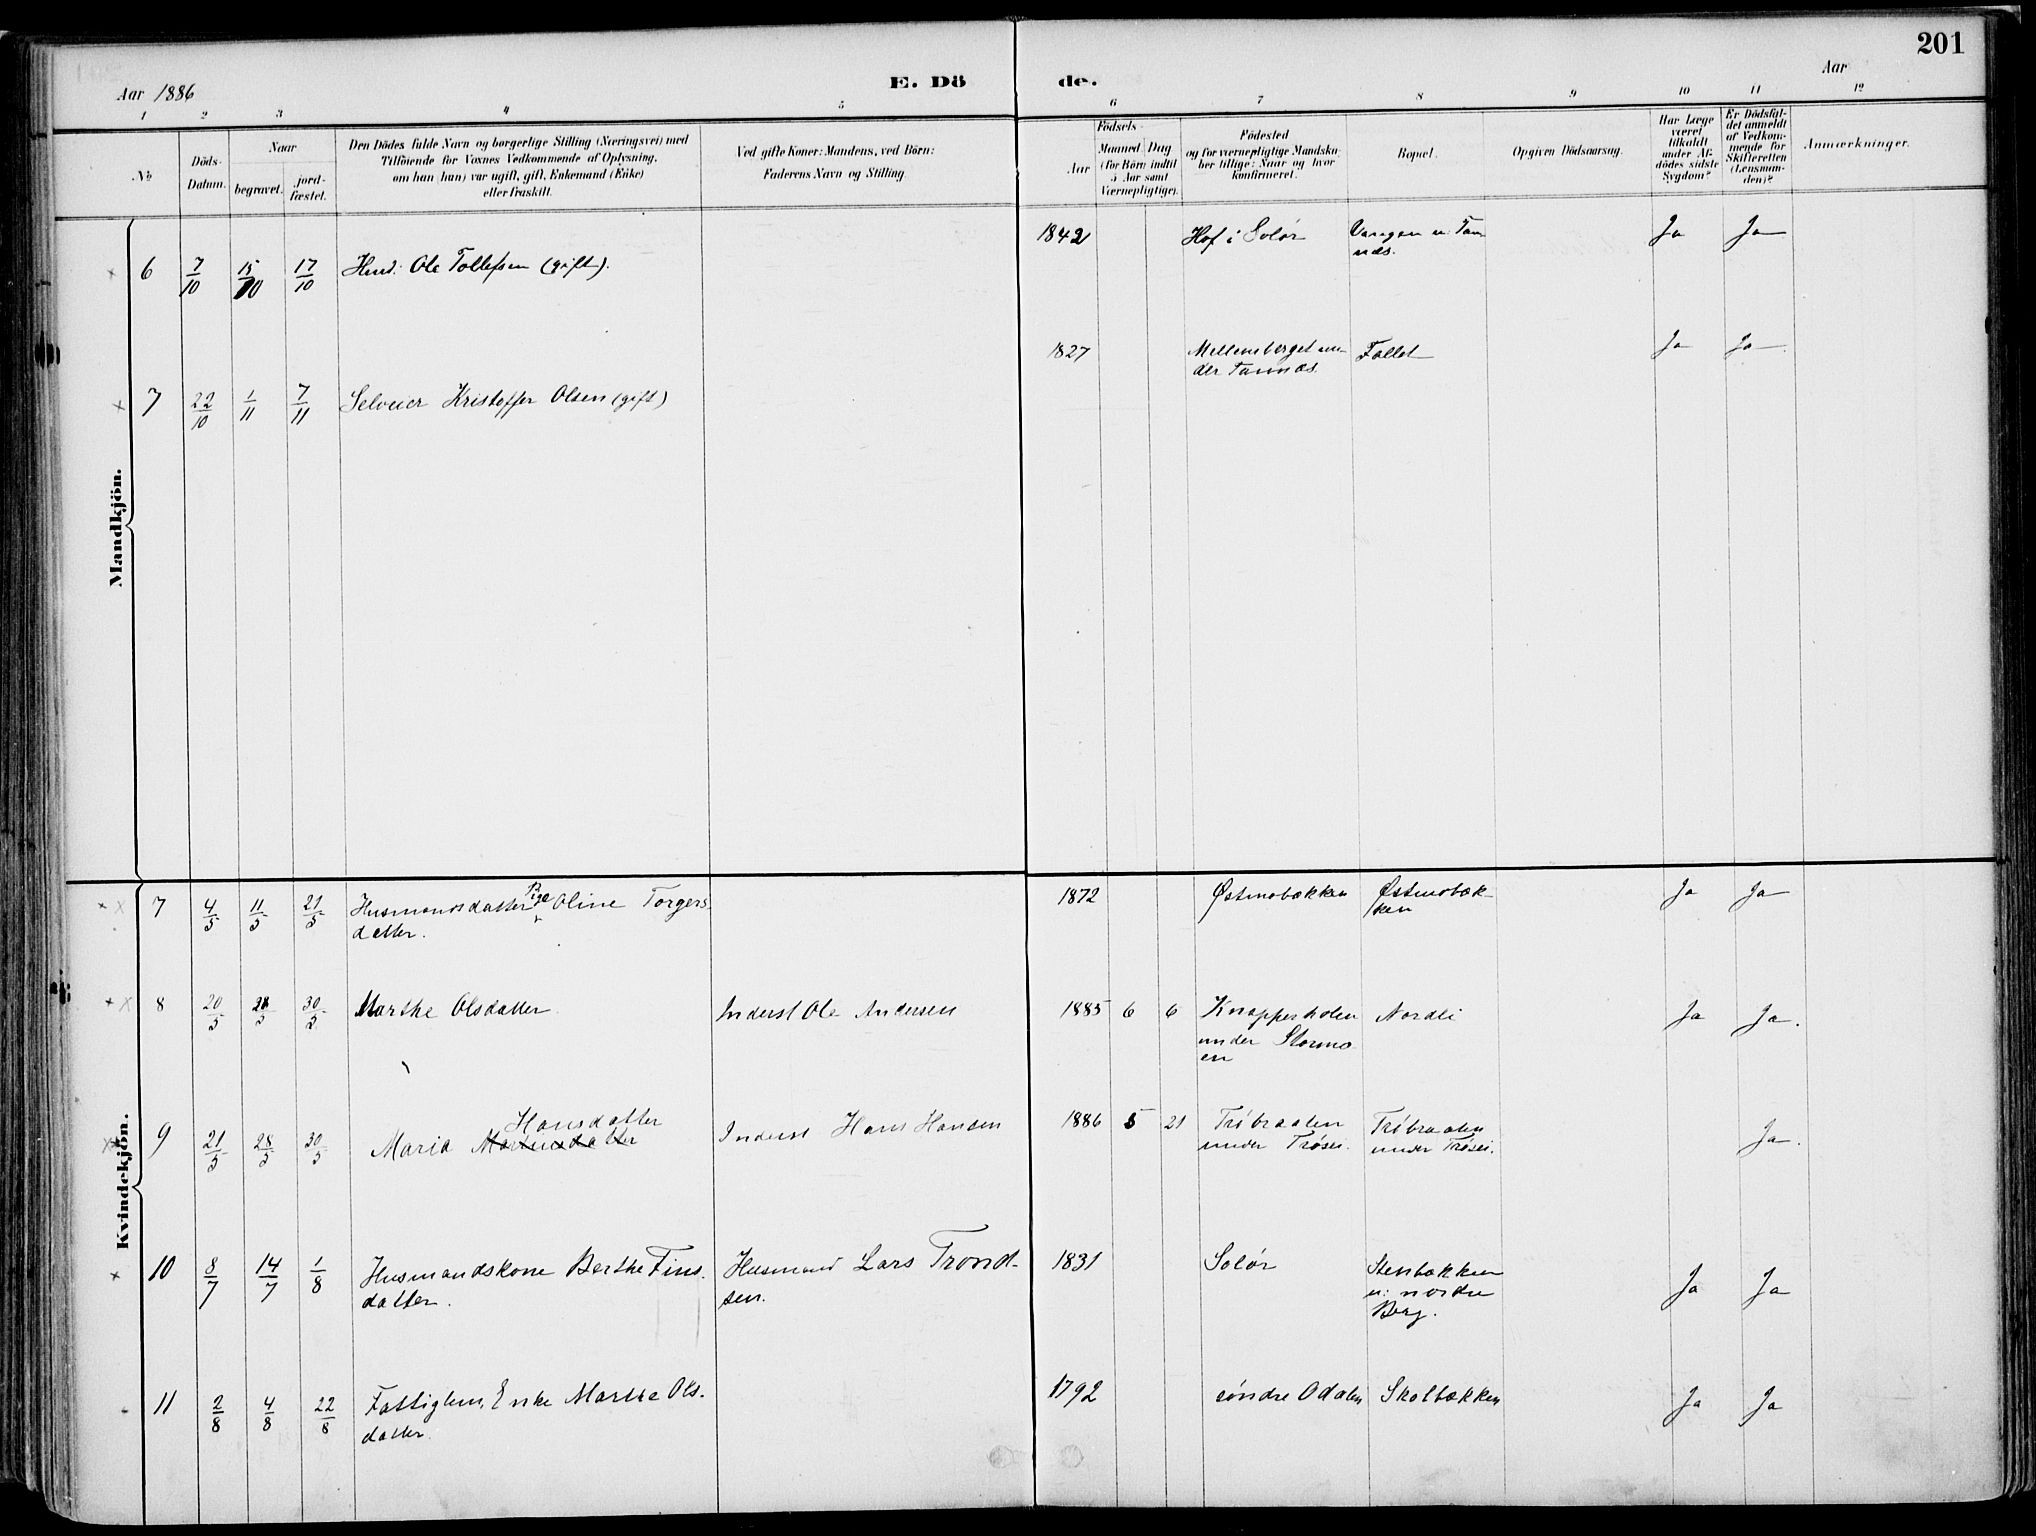 201
Aar 1886
E. Dö de.
Aar
1 2 3 4 5 6 7 8 9 10 11 12
No
Döds-
Datum.
Naar
begravet.
jord-
fæstet.
Den Dödes fulde Navn og borgerlige Stilling (Næringsvei) med
Tilföiende for Voxnes Vedkommende af Oplysning,
om han (hun) var ugift, gift, Enkemand (Enke)
eller fraskilt.
Ved gifte Koner: Mandens, ved Börn:
Faderens Navn og Stilling.
Födsels-
Aar
Maaned Dag
(for Börn indtil
5 Aar samt
Værnepligtige).
Födested
og for værnepligtige Mandska-
ber tillige: Naar og hvor
konfirmeret.
Bopæl.
Opgiven Dödsaarsag.
Har Læge
været
tilkaldt
under Af-
dödes sidste
Sygdom?
Er Dödsfal-
det anmeldt
af Vedkom-
mende for
Skifteretten
(Lensman-
den)?
Anmærkninger.
Mandkjön.
6 7/10 15/10 17/10 Husm. Ole Tollefsen (gift). 1842 Hof i Solør Ja Ja
7 22/10 1/11 7/11 Selveier Kristoffer Olsen (gift) 1827 Mellemberget un-
der Tannæs. Fallet Ja Ja
Kvindekjön.
7 4/5 11/5 21/5 Husmandsdatter Pige Oline Torgers-
datter. 1872 Østmobækken Østmobæk-
ken Ja Ja
8 20/5 28/5 30/5 Marthe Olsdatter Inderst Ole Andersen 1885 6 6 Knapperholen
under Stormo-
en Nordli Ja Ja.
9 21/5 28/5 30/5 Maria Martinsdatter Hansdatter Inderst Hans Hansen 1886 5 21 Tribraaten
under Trøsei. Tribraaten
under Trøsei. Ja.
10 8/7 14/7 1/8 Husmandskone Berthe Fins-
datter. Husmand Lars Trond-
sen. 1831 Solør Stenbækken
u: nordre
Berg. Ja Ja
11 2/8 4/8 22/8 Fattiglem, Enke Marthe Ols-
datter. 1792 søndre Odalen Skolbækken Ja Ja